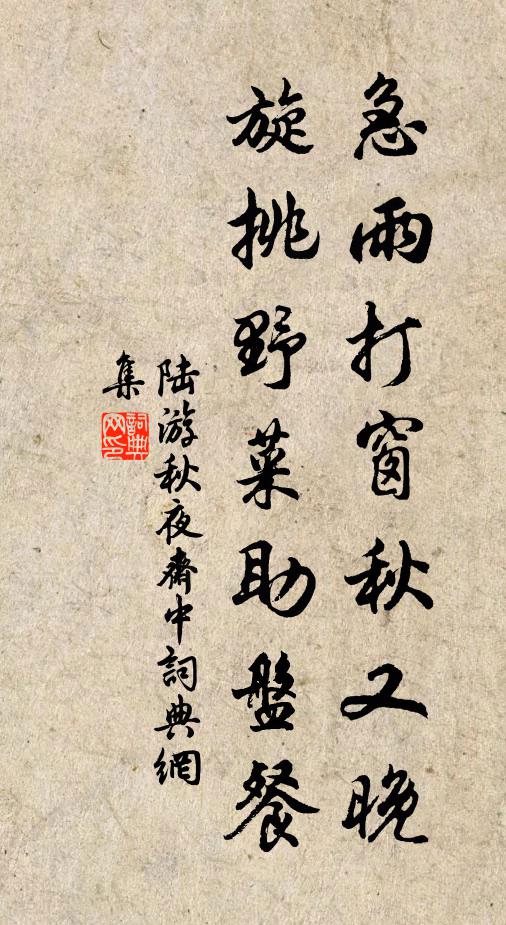 急雨打窗秋又晚
旋挑野菜助盤餐
陆游秋夜齋中詞典網
集
詞典网印